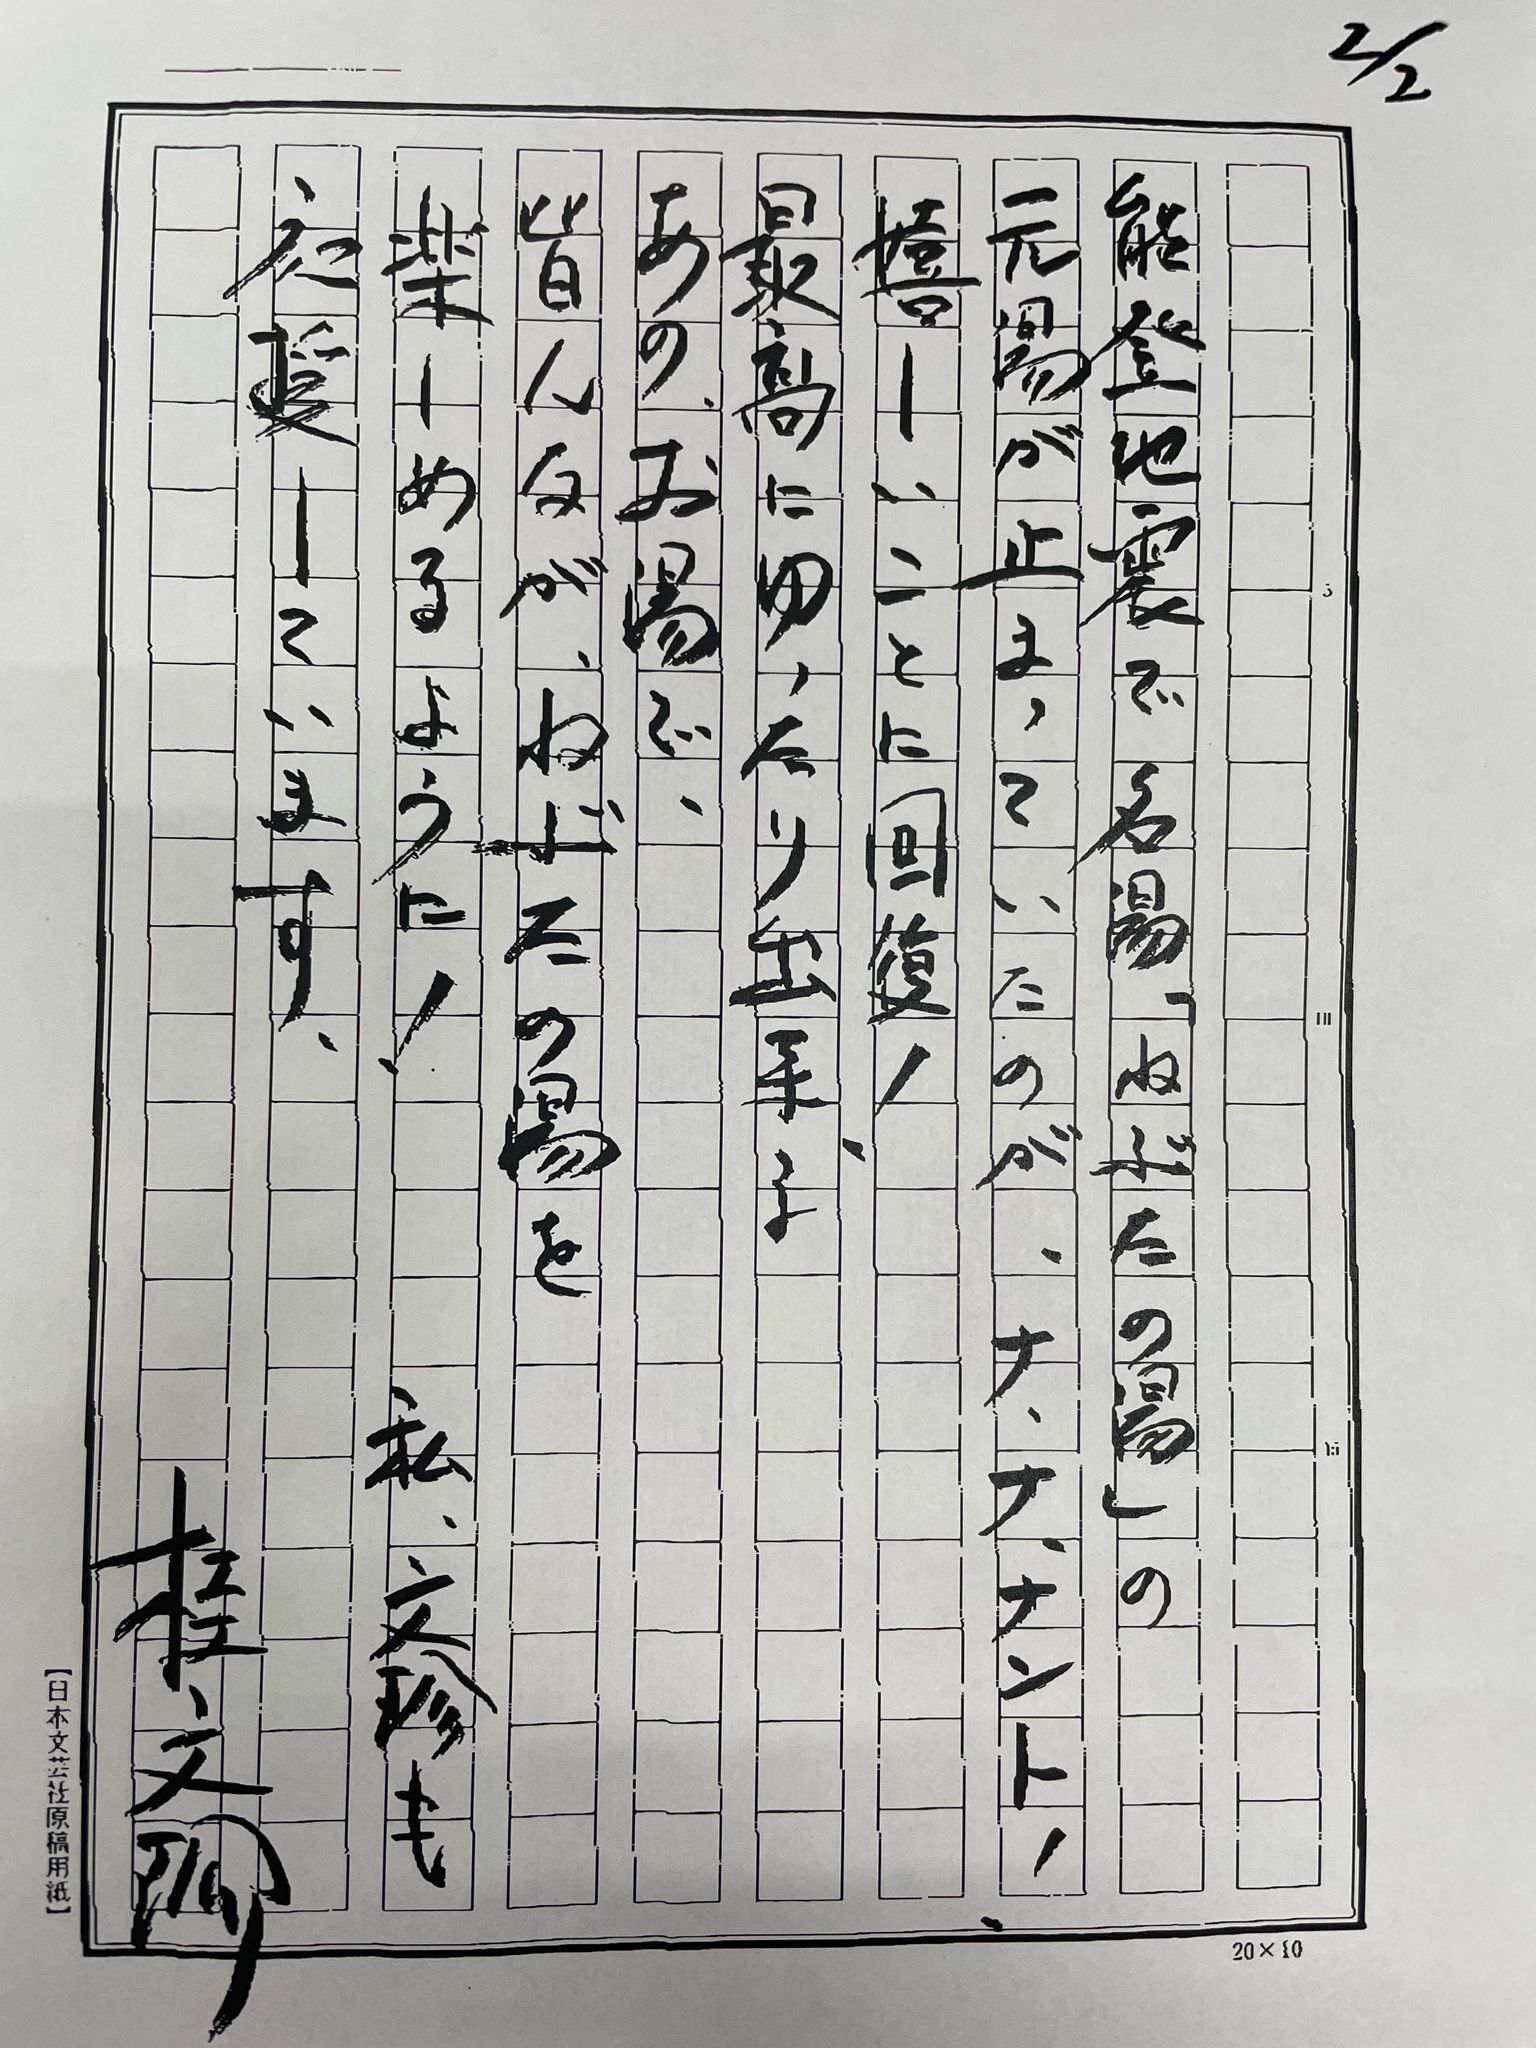 2/2
能登地震で名湯「ねぶたの湯」の
元湯が止まっていたのが、ナ、ナ、ナント!
嬉しいことに回復!
最高にゆったり出来る
あの、お湯で、
皆んなが、ねぶたの湯を
楽しめるように! 私、文珍も
応援しています、
桂文珍
5
10
15
20×10
【日本文芸社原稿用紙】